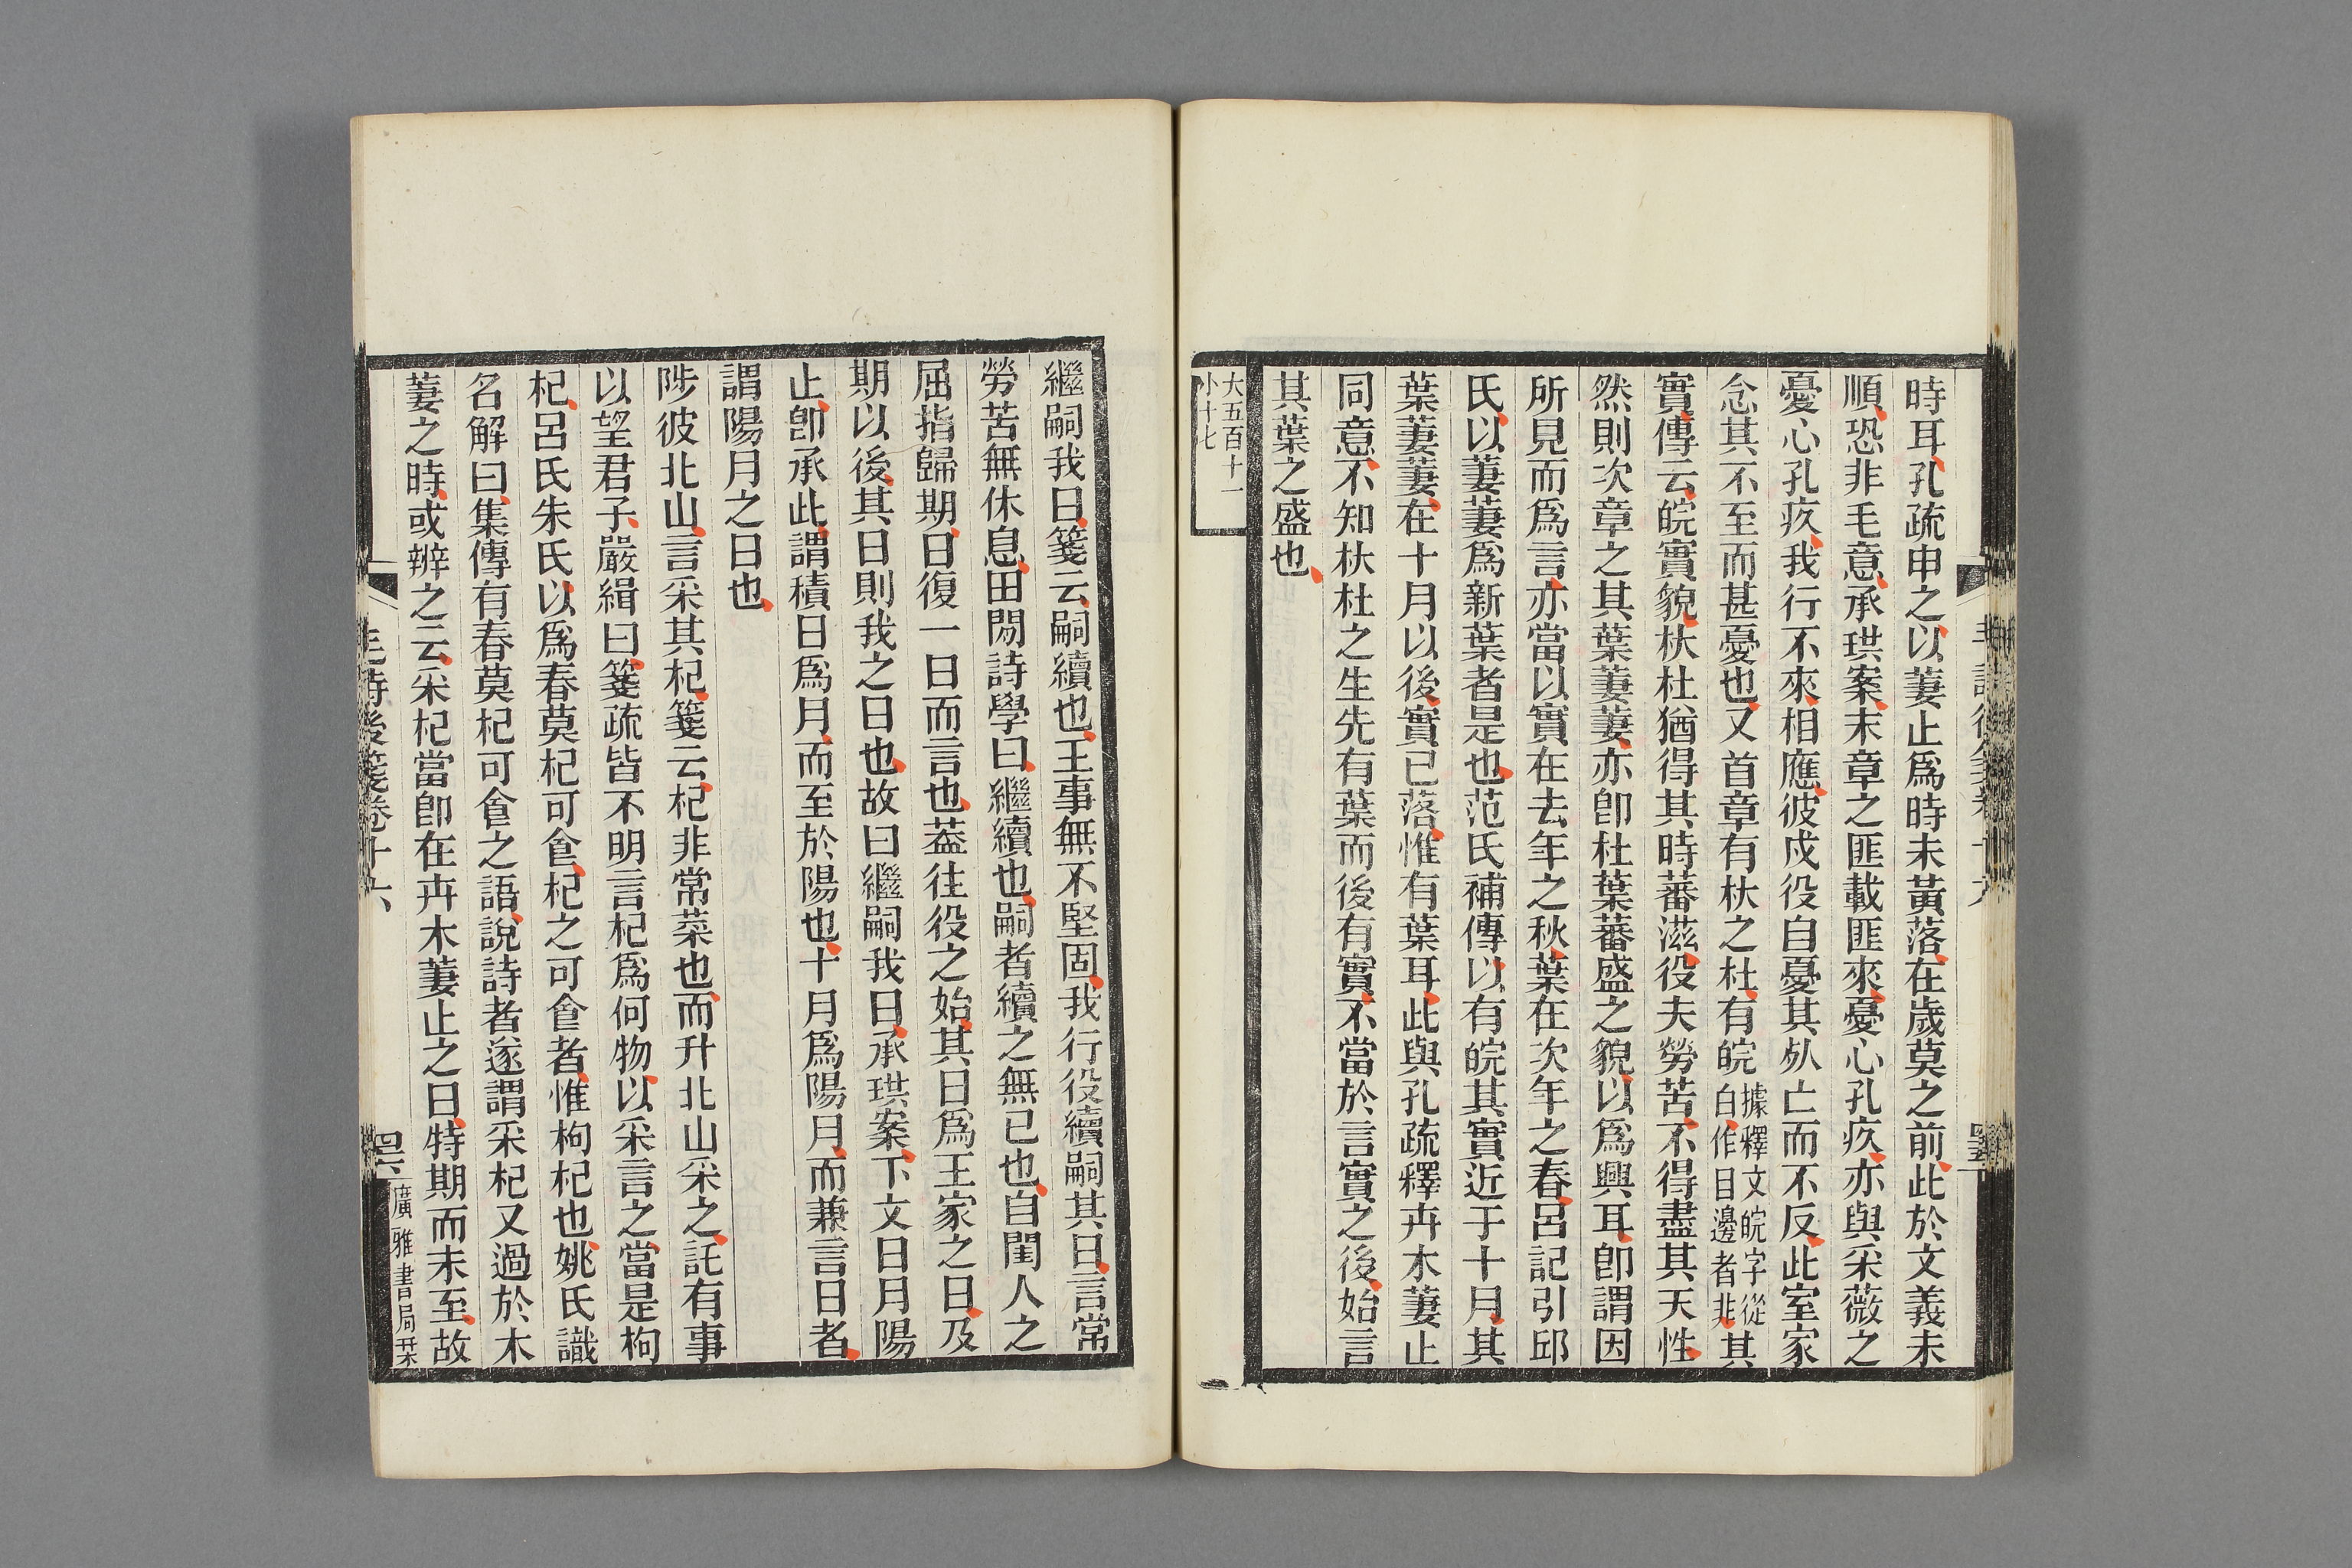 時耳孔疏申之以萋止爲時未黃落在歲莫之前此於文義未
順恐非毛意承珙案末章之匪載匪來憂心孔疚亦與采薇之
憂心孔疚我行不來相應彼戍役自憂其𠨖亡而不反此室家
念其不至而甚憂也又首章有杕之杜有睆據釋文睆字從白作目邊者非其
實傳云睆實貌杕杜猶得其時蕃滋役夫勞苦不得盡其天性
然則次章之其葉萋萋亦卽杜葉蕃盛之貌以爲興耳卽謂因
所見而爲言亦當以實在去年之秋葉在次年之春呂記引邱
氏以萋萋爲新葉者是也范氏補傳以有睆其實近于十月其
葉萋萋在十月以後實已落惟有葉耳此與孔疏釋卉木萋止
同意不知杕杜之生先有葉而後有實不當於言實之後始言
其葉之盛也
大五百十一
小十七
繼嗣我日箋云嗣續也王事無不堅固我行役續嗣其日言常
勞苦無休息田閒詩學曰繼續也嗣者續之無已也自閨人之
屈指歸期日復一日而言也葢往役之始其日爲王家之日及
期以後其日則我之日也故曰繼嗣我日承珙案下文日月陽
止卽承此謂積日爲月而至於陽也十月爲陽月而兼言日者
謂陽月之日也
陟彼北山言采其杞箋云杞非常菜也而升北山采之託有事
以望君子嚴緝曰箋疏皆不明言杞爲何物以采言之當是枸
杞呂氏朱氏以爲春莫杞可食杞之可食者惟枸杞也姚氏識
名解曰集傳有春莫杞可食之語說詩者遂謂采杞又過於木
萋之時或辨之云采杞當卽在卉木萋止之日特期而未至故
毛詩後箋卷十六
四六
廣雅書局栞